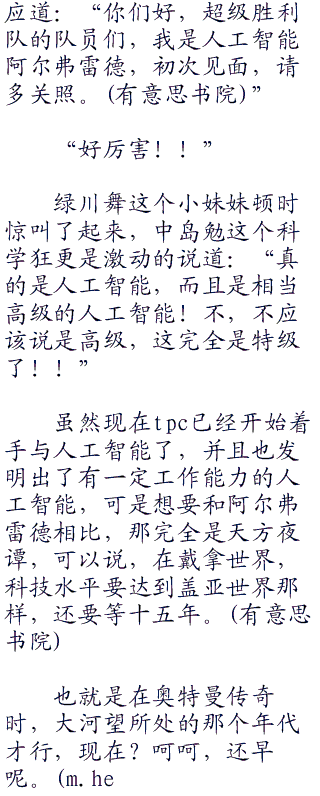 应道：“你们好，超级胜利
队的队员们，我是人工智能
阿尔弗雷德，初次见面，请
多关照。(有意思书院)”
“好厉害！！”
绿川舞这个小妹妹顿时
惊叫了起来，中岛勉这个科
学狂更是激动的说道：“真
的是人工智能，而且是相当
高级的人工智能！不，不应
该说是高级，这完全是特级
了！！”
虽然现在tpc已经开始着
手与人工智能了，并且也发
明出了有一定工作能力的人
工智能，可是想要和阿尔弗
雷德相比，那完全是天方夜
谭，可以说，在戴拿世界，
科技水平要达到盖亚世界那
样，还要等十五年。(有意思
书院)
也就是在奥特曼传奇
时，大河望所处的那个年代
才行，现在？呵呵，还早
呢。(m.he